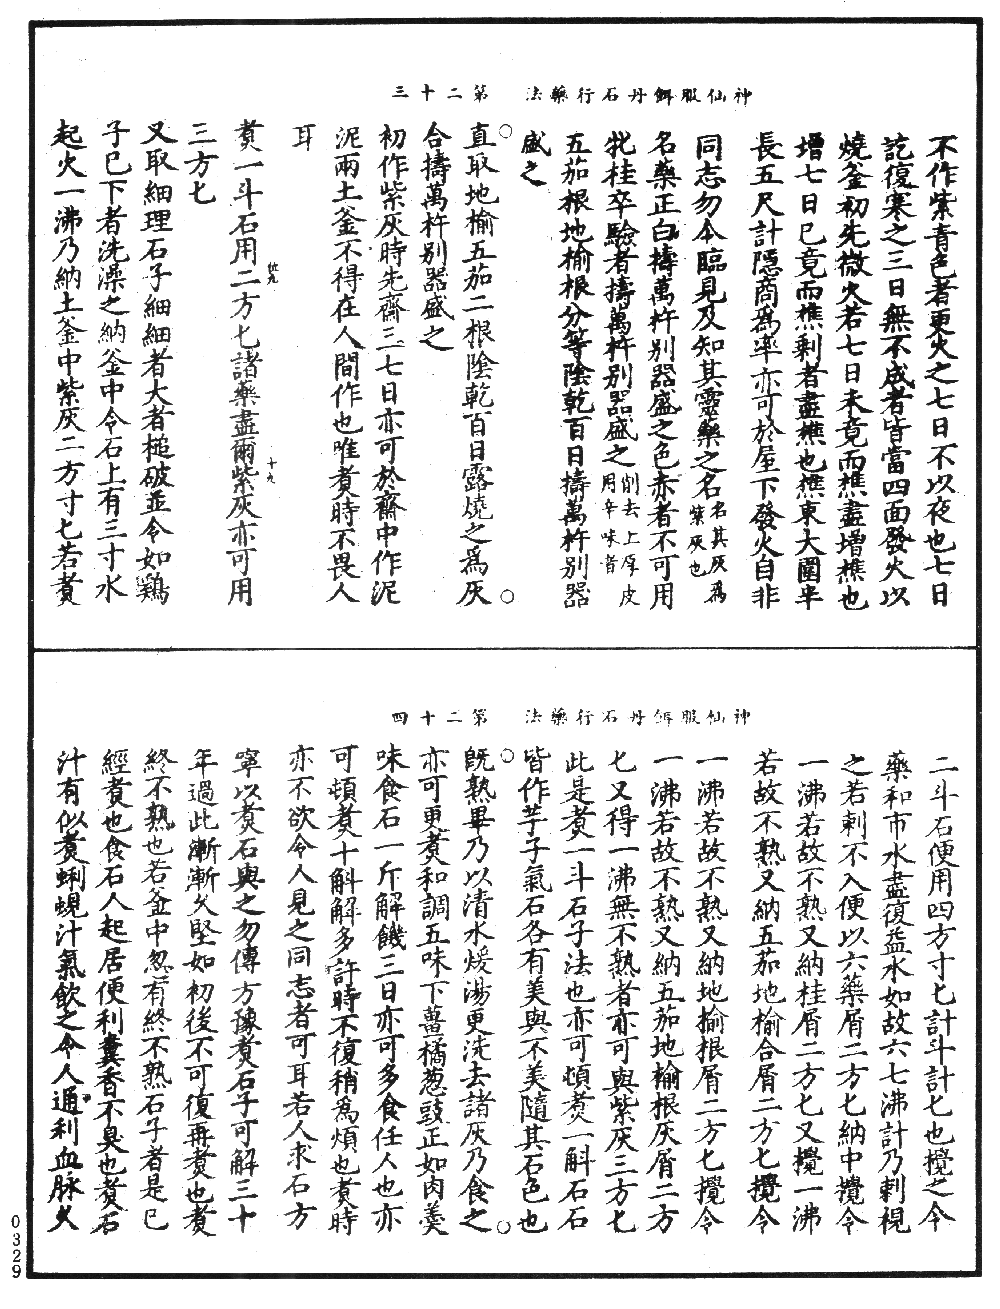 神仙服餌丹石行藥法　第二十三
不作紫青色者更火之七日不以夜也七日
訖復寒之三日無不成者皆當四面發火以
燒釜初先微火若七日未竟而樵盡增樵也
增七日已竟而樵剩者盡樵也樵東大圍半
長五尺計隱商爲率亦可於屋下發火自非
同志勿令臨見及知其靈藥之名名其灰爲紫灰也
名藥正白擣萬杵别器盛之色赤者不可用
牝桂卒驗者擣萬杵别器盛之削去上厚皮用辛味者
五茄根地榆根分等陰乾百日擣萬杵别器
盛之
直取地榆五茄二根陰乾百日露燒之爲灰
合擣萬杵别器盛之
初作紫灰時先齋三七日亦可於齋中作泥
泥兩土釜不得在人間作也唯煑時不畏人
耳
煑一斗石用二方七諸藥盡爾紫灰亦可用
三方七
又取細理石子細細者大者槌破並令如鷄
子已下者洗澡之納釜中令石上有三寸水
起火一沸乃納土釜中紫灰二方寸七若煑
神仙服餌丹石行藥法　第二十四
二斗石便用四方寸七計斗計七也攪之令
藥和市水盡復益水如故六七沸計乃刺視
之若刺不入便以六藥屑二方七納中攪令
一沸若故不熟又納桂屑二方七又攪一沸
若故不熟又納五茄地榆合屑二方七攪令
一沸若故不熟又納地榆根屑二方七攪令
一沸若故不熟又納五茄地榆根灰屑二方
七又得一沸無不熟者亦可與紫灰三方七
此是煑一斗石子法也亦可頓煑一斛石石
皆作芋子氣石各有美與不美隨其石色也
既熟畢乃以清水煖湯更洗去諸灰乃食之
亦可更煑和調五味下薑橘葱豉正如肉羹
味食石一斤解饑三日亦可多食任人也亦
可頓煑十斛解多許時不復稍爲煩也煑時
亦不欲令人見之同志者可耳若人求石方
寧以煑石與之勿傳方豫煑石子可解三十
年過此漸漸久堅如初後不可復再煑也煑
終不熟也若釜中忽有終不熟石子者是已
經煑也食石人起居便利糞香不臭也煑石
汁有似煑蜊蜆汁氣飲之令人通利血脉久
0329